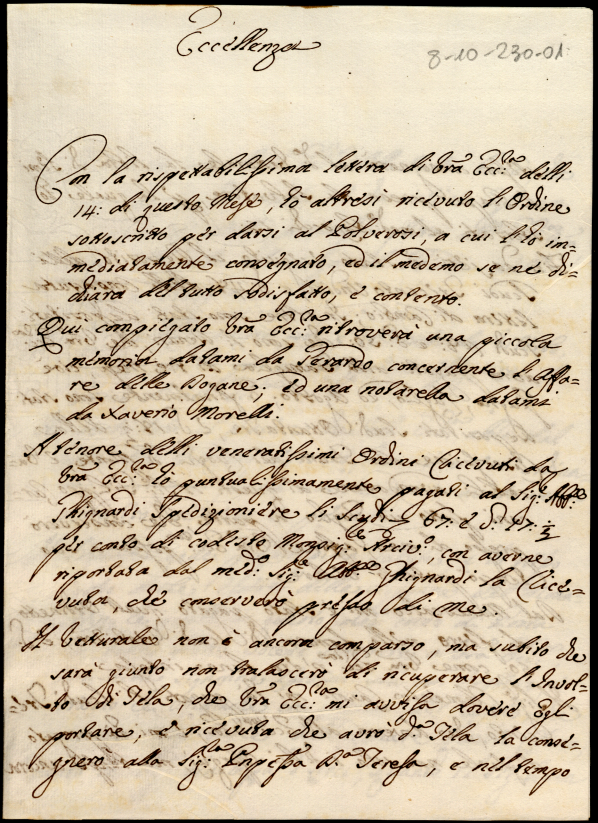 Eccellenza
8-10-230-01.
Con la rispettabilissima lettera di Vra Ecc:za delli
14: di questo Mese, hò altresi ricevuto l'Ordine
sottoscritto per darsi al Polverosi, a cui l'hò im=
mediatamente consegnato, ed il medemo se ne di=
chiara del tutto sodisfatto, e contento.
Qui compiegato Vra Ecc:za ritroverà una piccola
memoria datami da Gerardo concernente l'Affa=
re delle Dogane; ed una notarella datami
da Xaverio Morelli:
A tenore delli veneratissimi Ordini ricevuti da
Vra Ecc:za hò puntualissimamente pagati al Sig:r
Ghignardi Spedizioniere li Scudi 67: e d: 17: ½
per conto di codesto Monsig:re Arciv:o, con averne
riportata dal med:o Sig:re Ghignardi la rice=
vuta, che conserverò presso di me.
Il Vetturale non è ancora comparso, ma subito che
sarà giunto non tralascerò di ricuperare l'Invol=
to di Tela, che Vra Ecc:za mi avvisa dovere Egli
portare, e ricevuta che avrò d:a Tela la conse=
gnerò alla Sig:ra Pnpessa D:a Teresa, e nel tempo